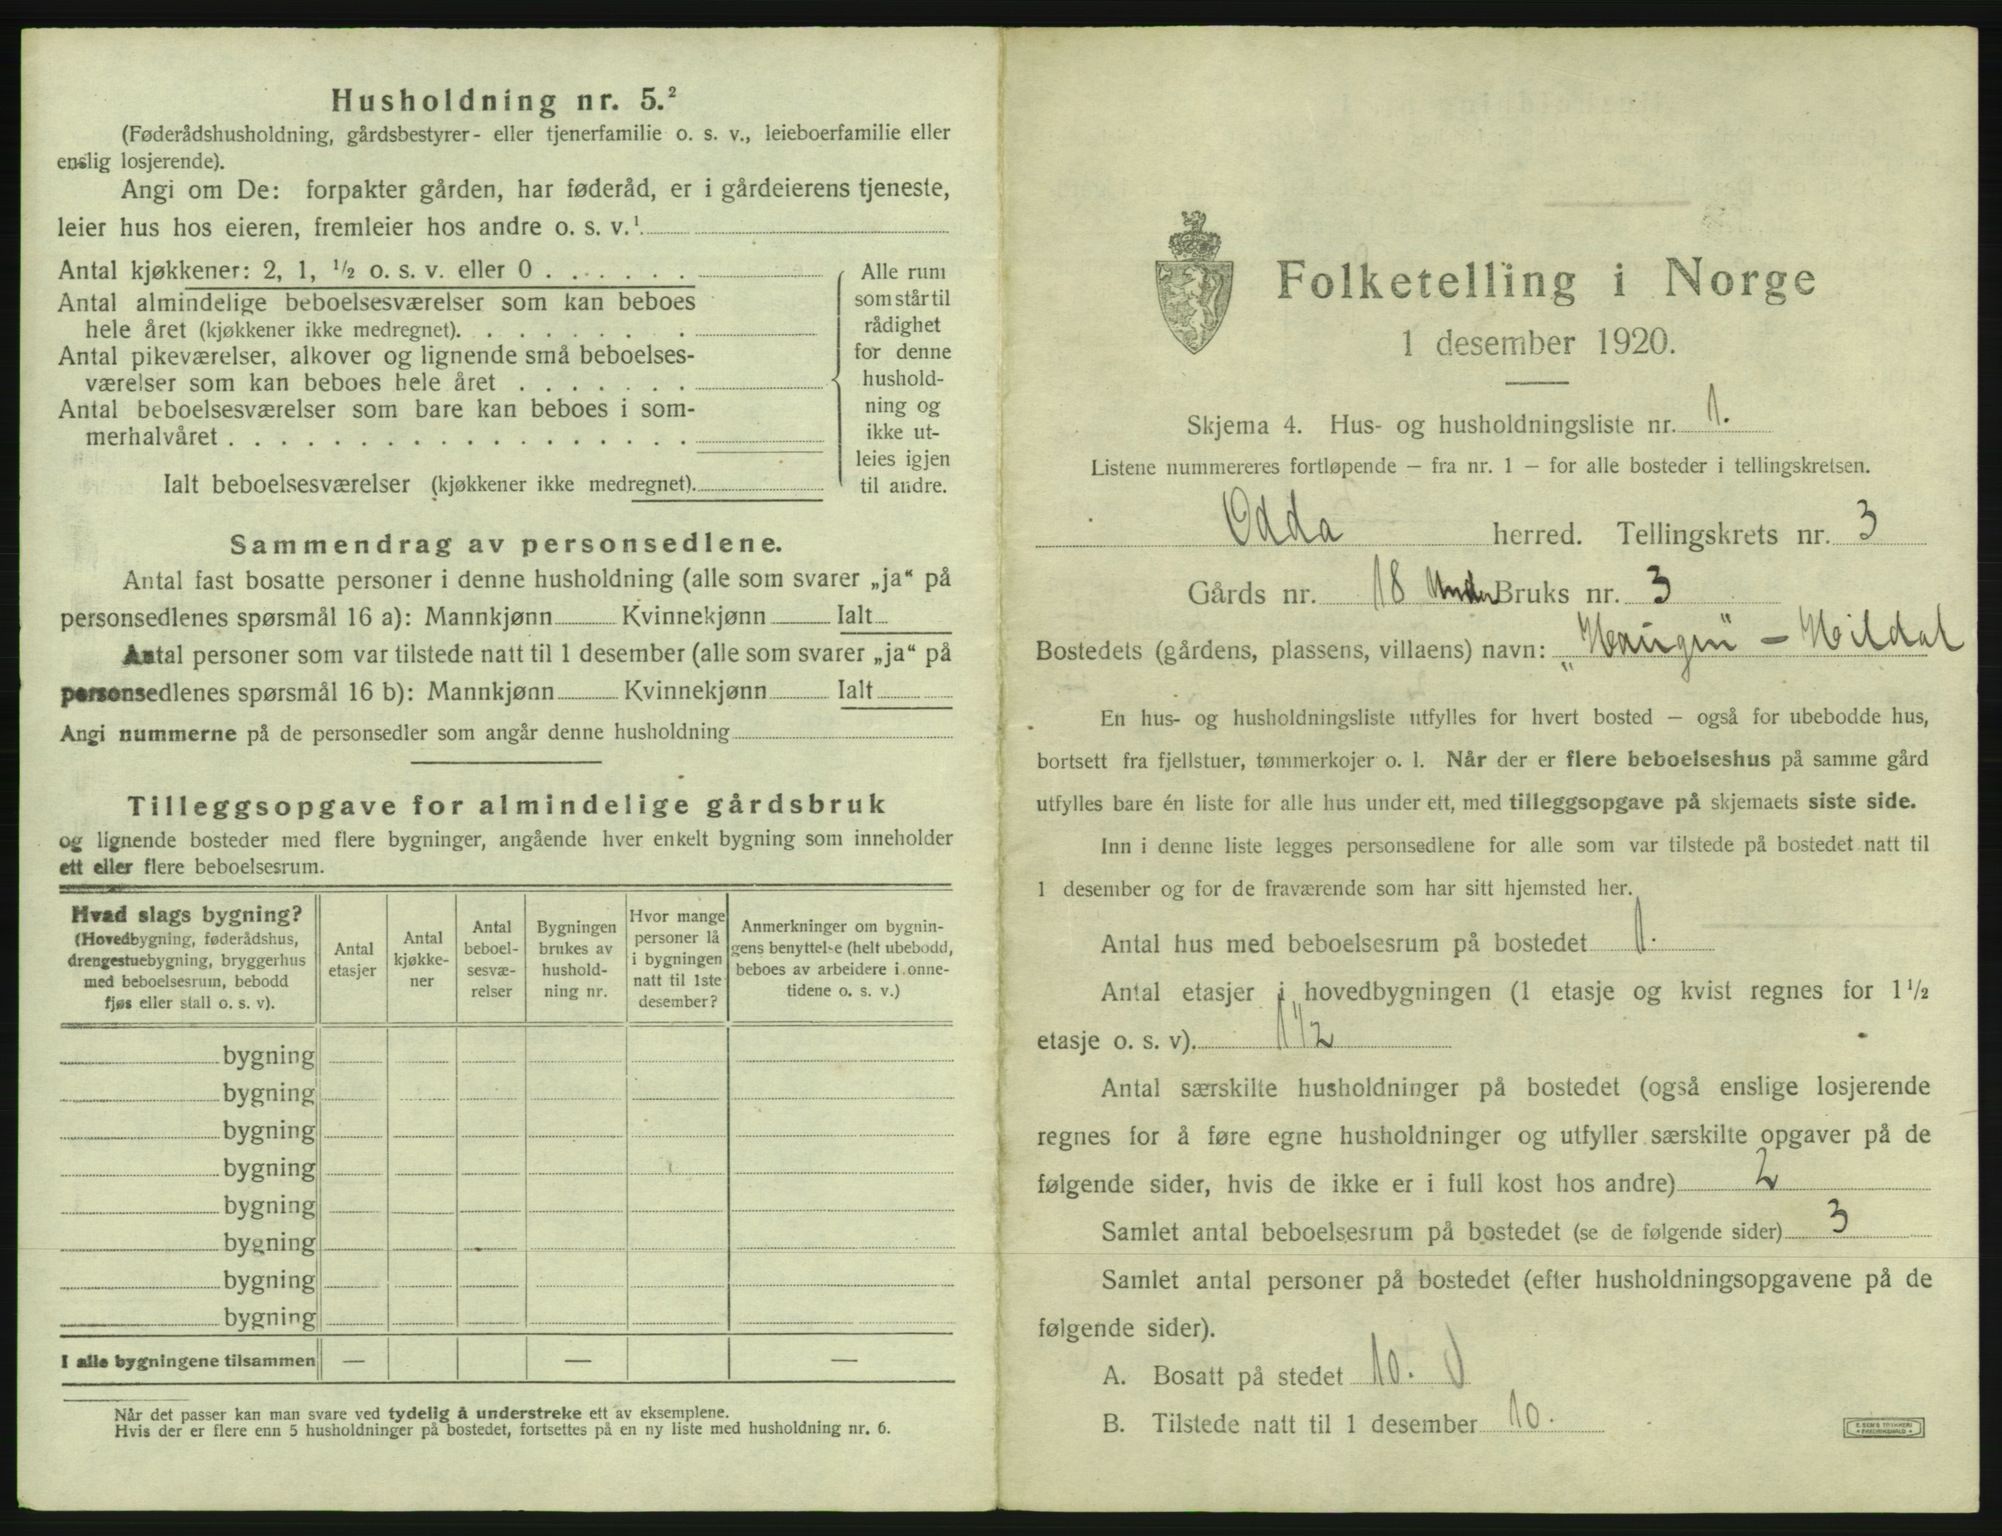 Husholdning nr. 5.²
(Føderådshusholdning, gårdsbestyrer- eller tjenerfamilie o. s. v., leieboerfamilie eller
enslig losjerende).
Angi om De: forpakter gården, har føderåd, er i gårdeierens tjeneste,
leier hus hos eieren, fremleier hos andre o. s. v.¹
Antal kjøkkener: 2, 1, ½ o. s. v. eller 0 . . . . . .
Antal almindelige beboelsesværelser som kan beboes
hele året (kjøkkener ikke medregnet). . . . . . . . .
Antal pikeværelser, alkover og lignende små beboelses-
værelser som kan beboes hele året . . . . . . .
Antal beboelsesværelser som bare kan beboes i som-
merhalvåret . . . . . . . . . . . . . . . . . .
Ialt beboelsesværelser (kjøkkener ikke medregnet).
Alle rum
som står til
rådighet
for denne
hushold-
ning og
ikke ut-
leies igjen
til andre.
Sammendrag av personsedlene.
Antal fast bosatte personer i denne husholdning (alle som svarer „ja“ på
personsedlenes spørsmål 16 a): Mannkjønn Kvinnekjønn Ialt
Antal personer som var tilstede natt til 1 desember (alle som svarer „ja“ på
personsedlenes spørsmål 16 b): Mannkjønn Kvinnekjønn Ialt
Angi nummerne på de personsedler som angår denne husholdning
Tilleggsopgave for almindelige gårdsbruk
og lignende bosteder med flere bygninger, angående hver enkelt bygning som inneholder
ett eller flere beboelsesrum.
Hvad slags bygning?
(Hovedbygning, føderådshus,
drengestuebygning, bryggerhus
med beboelsesrum, bebodd
fjøs eller stall o. s. v).
Antal
etasjer
Antal
kjøkke-
ner
Antal
beboel-
sesvæ-
relser
Bygningen
brukes av
hushold-
ning nr.
Hvor mange
personer lå
i bygningen
natt til 1ste
desember?
Anmerkninger om bygnin-
gens benyttelse (helt ubebodd,
beboes av arbeidere i onne-
tidene o. s. v.)
bygning
bygning
bygning
bygning
bygning
bygning
bygning
bygning
I alle bygningene tilsammen — — —
Når det passer kan man svare ved tydelig å understreke ett av eksemplene.
Hvis der er flere enn 5 husholdninger på bostedet, fortsettes på en ny liste med husholdning nr. 6.
Folketelling i Norge
1 desember 1920.
Skjema 4. Hus- og husholdningsliste nr. 1.
Listene nummereres fortløpende – fra nr. 1 – for alle bosteder i tellingskretsen.
Odda herred. Tellingskrets nr. 3
Gårds nr. 18 Under Bruks nr. 3
Bostedets (gårdens, plassens, villaens) navn: „Haugen" – Hildal
En hus- og husholdningsliste utfylles for hvert bosted – også for ubebodde hus,
bortsett fra fjellstuer, tømmerkojer o. l. Når der er flere beboelseshus på samme gård
utfylles bare én liste for alle hus under ett, med tilleggsopgave på skjemaets siste side.
Inn i denne liste legges personsedlene for alle som var tilstede på bostedet natt til
1 desember og for de fraværende som har sitt hjemsted her.
Antal hus med beboelsesrum på bostedet 1.
Antal etasjer i hovedbygningen (1 etasje og kvist regnes for 1½
etasje o. s. v). 1½
Antal særskilte husholdninger på bostedet (også enslige losjerende
regnes for å føre egne husholdninger og utfyller særskilte opgaver på de
følgende sider, hvis de ikke er i full kost hos andre) 2
Samlet antal beboelsesrum på bostedet (se de følgende sider) 3
Samlet antal personer på bostedet (efter husholdningsopgavene på de
følgende sider).
A. Bosatt på stedet 10.
B. Tilstede natt til 1 desember 10.